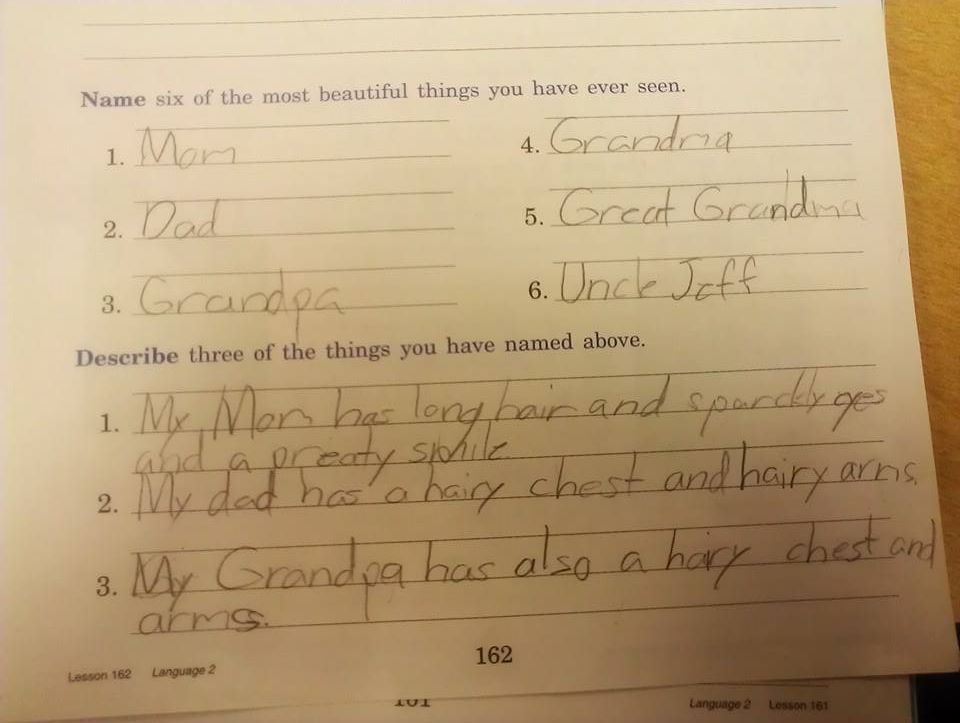 Name six of the most beautiful things you have ever seen.
1. Mom
2. Dad
3. Grandpa
4. Grandma
5. Great Grandma
6. Uncle Jeff
Describe three of the things you have named above.
1. My Mom has long hair and sparckly yes
and a preaty smile
2. My dad has a hairy chest and hairy arms.
3. My Grandpa has also a hairy chest and
arms.
162
Lesson 162 Language 2
161
Language 2 Lesson 161